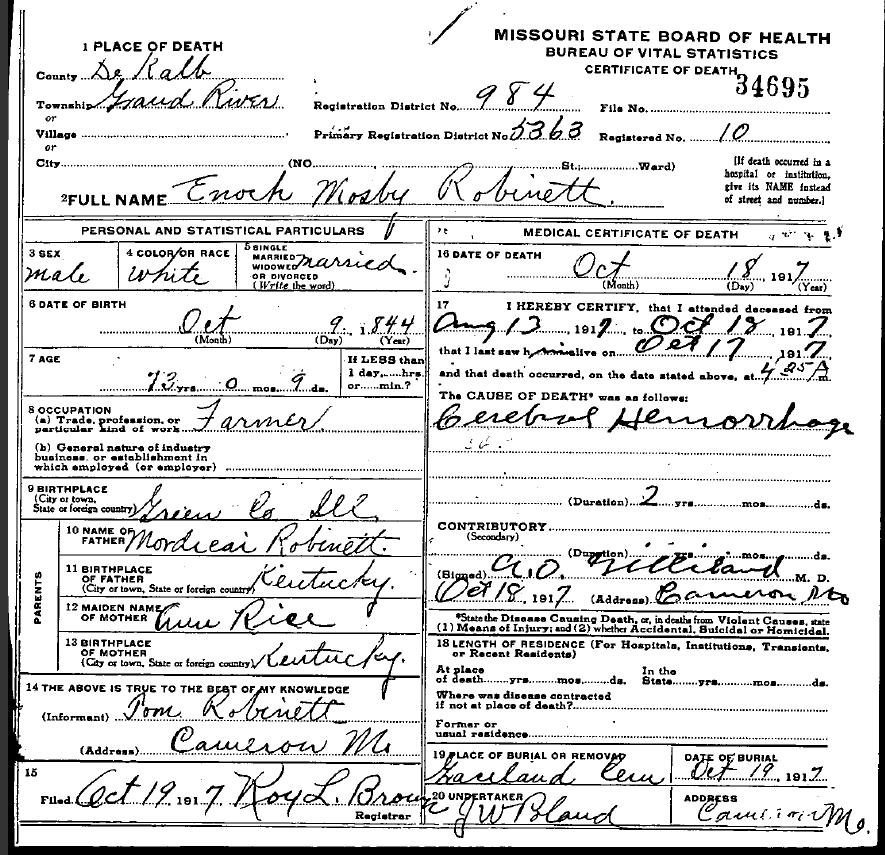 MISSOURI STATE BOARD OF HEALTH
BUREAU OF VITAL STATISTICS
CERTIFICATE OF DEATH
34695
1 PLACE OF DEATH
County De Kalb
Township Grand River
or
Village
or
City (NO. St.; Ward)
Registration District No. 984 File No.
Primary Registration District No. 5363 Registered No. 10
[If death occurred in a
hospital or institution,
give its NAME instead
of street and number.]
2 FULL NAME Enoch Mosby Robinett.
PERSONAL AND STATISTICAL PARTICULARS
3 SEX
male
4 COLOR OR RACE
White
5 SINGLE
MARRIED
WIDOWED
OR DIVORCED
(Write the word)
married.
6 DATE OF BIRTH
Oct 9, 1844
(Month) (Day) (Year)
7 AGE
73 yrs. 0 mos. 9 ds.
If LESS than
1 day, hrs.
or min.?
8 OCCUPATION
(a) Trade, profession, or
particular kind of work
Farmer
(b) General nature of industry
business, or establishment in
which employed (or employer)
9 BIRTHPLACE
(City or town,
State or foreign country)
Green Co Ill
PARENTS
10 NAME OF
FATHER
Mordicai Robinett.
11 BIRTHPLACE
OF FATHER
(City or town, State or foreign country)
Kentucky.
12 MAIDEN NAME
OF MOTHER
Ann Rice
13 BIRTHPLACE
OF MOTHER
(City or town, State or foreign country)
Kentucky.
14 THE ABOVE IS TRUE TO THE BEST OF MY KNOWLEDGE
(Informant) Tom Robinett
(Address) Cameron Mo
15
Filed Oct 19 1917 Roy L. Brown
Registrar
MEDICAL CERTIFICATE OF DEATH
16 DATE OF DEATH
Oct 18, 1917
(Month) (Day) (Year)
17 I HEREBY CERTIFY, that I attended deceased from
Aug 13, 1917, to Oct 18 1917
that I last saw him alive on Oct 17, 1917
and that death occurred, on the date stated above, at 4 25A m
The CAUSE OF DEATH* was as follows:
Cerebral Hemorrhage
(Duration) 2 yrs. mos. ds.
CONTRIBUTORY
(Secondary)
(Duration) yrs. mos. ds.
(Signed) A.O. Gilliland M. D.
Oct 18, 1917 (Address) Cameron Mo
*State the Disease Causing Death, or, in deaths from Violent Causes, state
(1) Means of Injury; and (2) whether Accidental, Suicidal or Homicidal.
18 LENGTH OF RESIDENCE (For Hospitals, Institutions, Transients,
or Recent Residents)
At place
of death yrs. mos. ds.
In the
State yrs. mos. ds.
Where was disease contracted
if not at place of death?
Former or
usual residence
19 PLACE OF BURIAL OR REMOVAL
Cem
DATE OF BURIAL
Oct 19 1917
20 UNDERTAKER
JW Poland
ADDRESS
Cameron Mo.